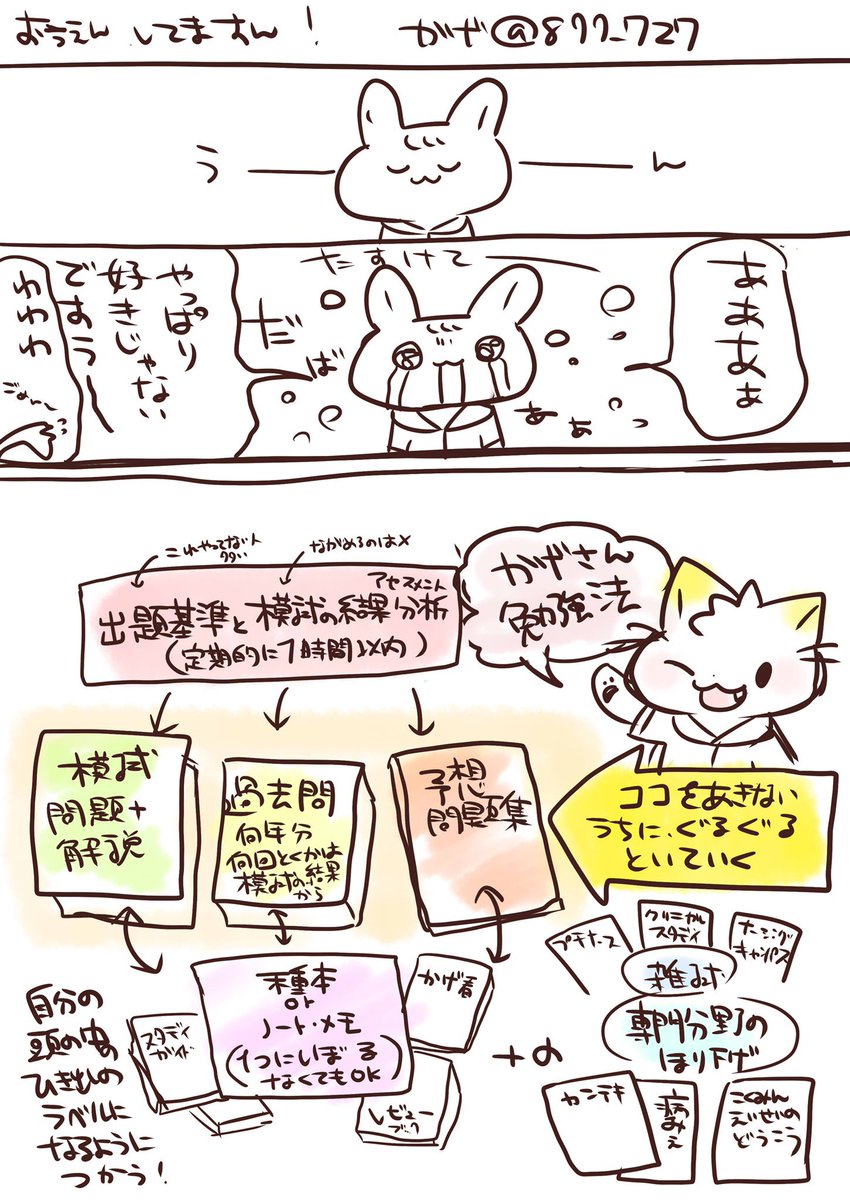 おうえん してますん！
がげ@877_727
う―――ん
たすけて
ああああぁ
だ
ば
ぁぁっ
やっぱり
好きじゃない
ですう〜
わわわ
これやってない人
多い
ながめるのは×
アセスメント
出題基準と模試の結果分析
(定期的に1時間以内)
がげさん
勉強法
模試
問題+
解説
過去問
何年分
何回とくかは
模試の結果
から
予想
問題集
ココをあきない
うちに、ぐるぐる
といていく
プチナース
クリニカル
スタディ
ナーシング
キャンパス
雑誌
専門分野の
ほり下げ
カンテキ
病みえ
こくみん
えいせいの
どうこう
+α
種本
or
ノート・メモ
(1つにしぼる
なくてもOK)
かげ看
スタディ
ガイド
レビュー
ブック
自分の
頭の中の
ひき出しの
ラベルに
なるように
つかう！